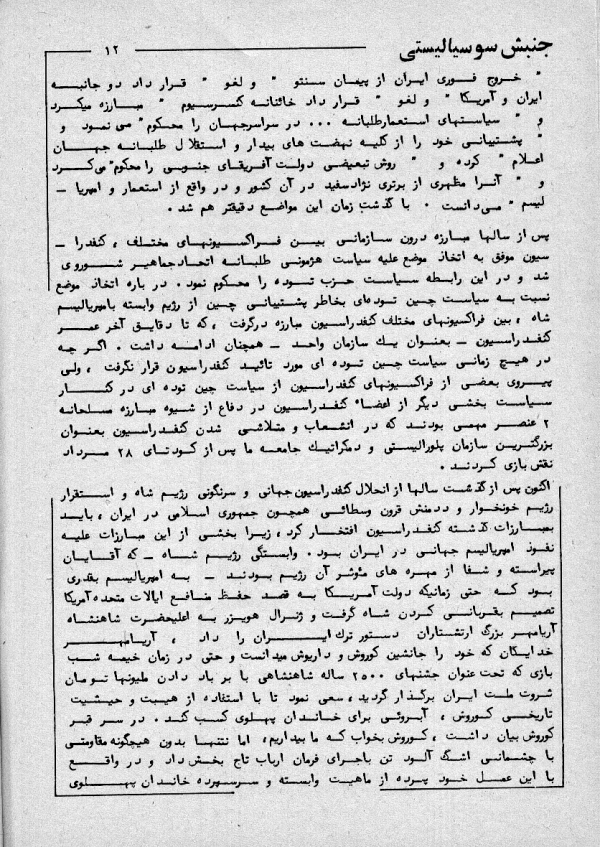 جنبش سوسیالیستی
۱۲
" خروج فوری ایران از پیمان سنتو " و لغو " قرار داد دو جانبه
ایران و آمریکا " و لغو " قرار داد خائنانه کنسرسیوم " مبارزه میکرد
و " سیاستهای استعمارطلبانه ... در سراسرجهان را محکوم " می نمود و
" پشتیبانی خود را از کلیه نهضت های بیدار و استقلال طلبانه جهان
اعلام " کرده و " روش تبعیضی دولت آفریقای جنوبی را محکوم " می کرد
و " آنرا مظهری از برتری نژادسفید در آن کشور و در واقع از استعمار و امپریا —
لیسم " می دانست . با گذشت زمان این مواضع دقیقتر هم شد .
پس از سالها مبارزه درون سازمانی بین فراکسیونهای مختلف ، کنفدرا —
سیون موفق به اتخاذ موضع علیه سیاست هژمونی طلبانه اتحادجماهیر شوروی
شد و در این رابطه سیاست حزب توده را محکوم نمود . در باره اتخاذ موضع
نسبت به سیاست چین توده‌ای بخاطر پشتیبانی چین از رژیم وابسته بامپریالیسم
شاه ، بین فراکسیونهای مختلف کنفدراسیون مبارزه درگرفت ، که تا دقایق آخر عمر
کنفدراسیون — بعنوان یك سازمان واحد — همچنان ادامه داشت . اگر چه
در هیچ زمانی سیاست چین توده ای مورد تائید کنفدراسیون قرار نگرفت ، ولی
پیروی بعضی از فراکسیونهای کنفدراسیون از سیاست چین توده ای در کنار
سیاست بخشی دیگر از اعضاء کنفدراسیون در دفاع از شیوه مبارزه مسلحانه
۲ عنصر مهمی بودند که در انشعاب و متلاشی شدن کنفدراسیون بعنوان
بزرگترین سازمان پلورالیستی و دمکراتیك جامعه ما پس از کودتای ۲۸ مرداد
نقش بازی کردند .
اکنون پس از گذشت سالها از انحلال کنفدراسیون جهانی و سرنگونی رژیم شاه و استقرار
رژیم خونخوار و ددمنش قرون وسطائی همچون جمهوری اسلامی در ایران ، باید
بمبارزات گذشته کنفدراسیون افتخار کرد ، زیرا بخشی از این مبارزات علیه
نفوذ امپریالیسم جهانی در ایران بود . وابستگی رژیم شاه — که آقایان
پیراسته و شفا از مهره های مؤثر آن رژیم بودند — به امپریالیسم بقدری
بود که حتی زمانیکه دولت آمریکا به قصد حفظ منافع ایالات متحده آمریکا
تصمیم بقربانی کردن شاه گرفت و ژنرال هویزر به اعلیحضرت شاهنشاه
آریامهر بزرگ ارتشتاران دستور ترك ایران را داد ، آریامهر
خدایگان که خود را جانشین کوروش و داریوش میدانست و حتی در زمان خیمه شب
بازی که تحت عنوان جشنهای ۲۵۰۰ ساله شاهنشاهی با بر باد دادن ملیونها تومان
ثروت ملت ایران برگذار گردید ، سعی نمود تا با استفاده از هیبت و حیثیت
تاریخی کوروش ، آبروئی برای خاندان پهلوی کسب کند . در سر قبر
کوروش بیان داشت ، کوروش بخواب که ما بیداریم ، اما نتنها بدون هیچگونه مقاومتی
با چشمانی اشگ آلود تن باجرای فرمان ارباب تاج بخش داد و در واقع
با این عمل خود پرده از ماهیت وابسته و سرسپرده خاندان پهلوی